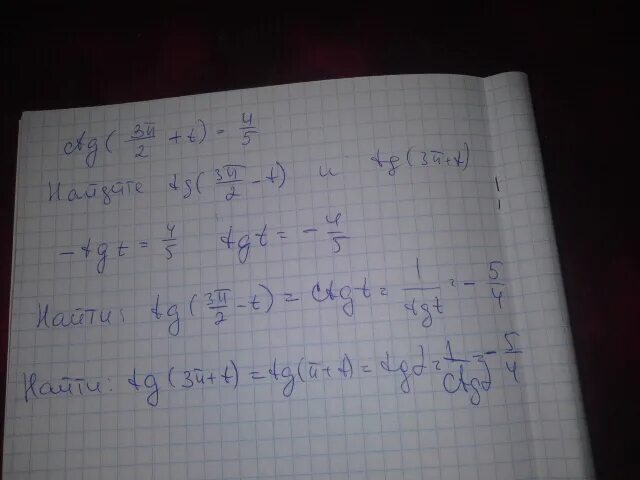 ctg(3π/2 + t) = 4/5
Найдите tg(3π/2 - t) и tg(3π+t)
-tgt = 4/5 tgt = -4/5
Найти: tg(3π/2 - t) = ctgt = 1/tgt = -5/4
Найти: tg(3π+t) = tg(π+t) = tgt = 1/ctgt = -5/4